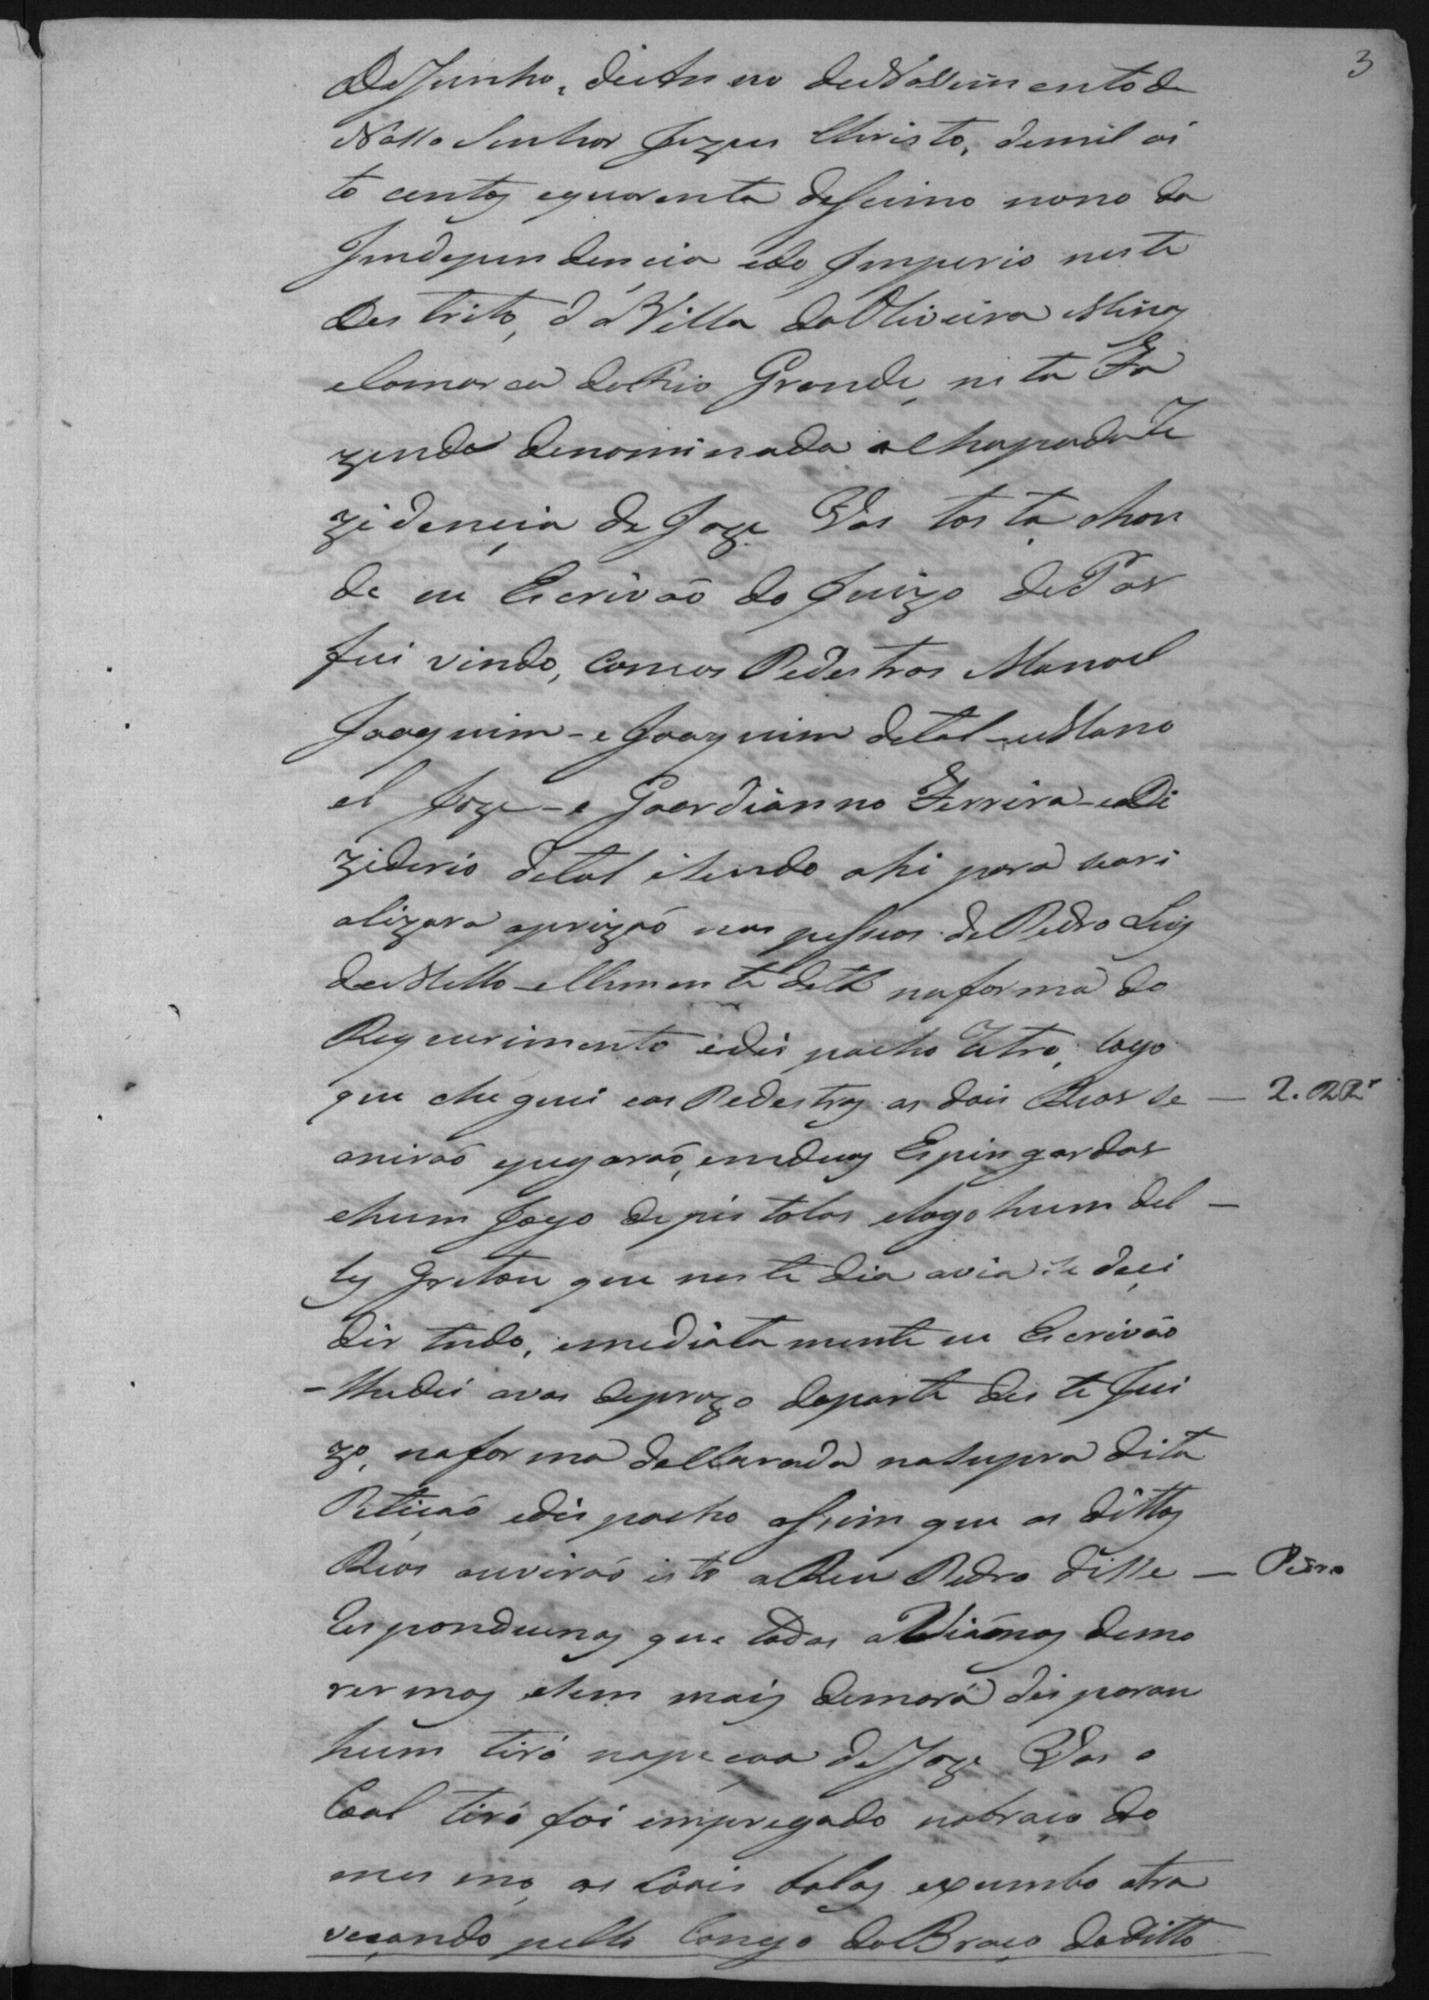 3
De Junho, do Anno do Nassimento de
Nosso Senhor Jezus Christo, de mil oi
to centos e quarenta desimo nono da
Independencia e do Imperio neste
Destrito, da Villa da Oliveira Minas
Comarca do Rio Grande, nesta Fa
zenda denominada a Chapada Re
zidençia de Joze Vas tosta, ahon
de eu Escrivão do Juizo de Pas
fui vindo, com os Pedestros Manoel
Joaquim - e Joaquim de tal - e Mano
el Joze - e Goardianno Ferreira - e De
ziderio de tal e sendo ahi para se ari
alizara a prizaó nas pessuas de Pedro Luis
de Mello e Clemente de tal na forma do
Requerimento e des pacho Retro, logo
que cheguei e os Pedestros os dois Reos se — 2. RRˢ
aniraó e pegaraó, em duas Espingardas
e hum Jogo de pistolas e logo hum del —
les gritou que neste dia avia se deçi
dir tudo, emediatamente eu Escrivão
- lhe dei a vos de prezo da parte deste Jui
zo, na forma decllarada na supra dita
Petiçaó e des pacho assim que os dittos
Reos ouviraó isto o Reu Pedro disse — Pedro
Respondeunos que todos aviamos de mo
rermos e sem mais demora des parou
hum tiro na peçoa de Joze Vas o
Coal tiro foi empregado no braço do
mesmo, as Coais balas e xumbo atra
veçando pello Congo do Braço do ditto